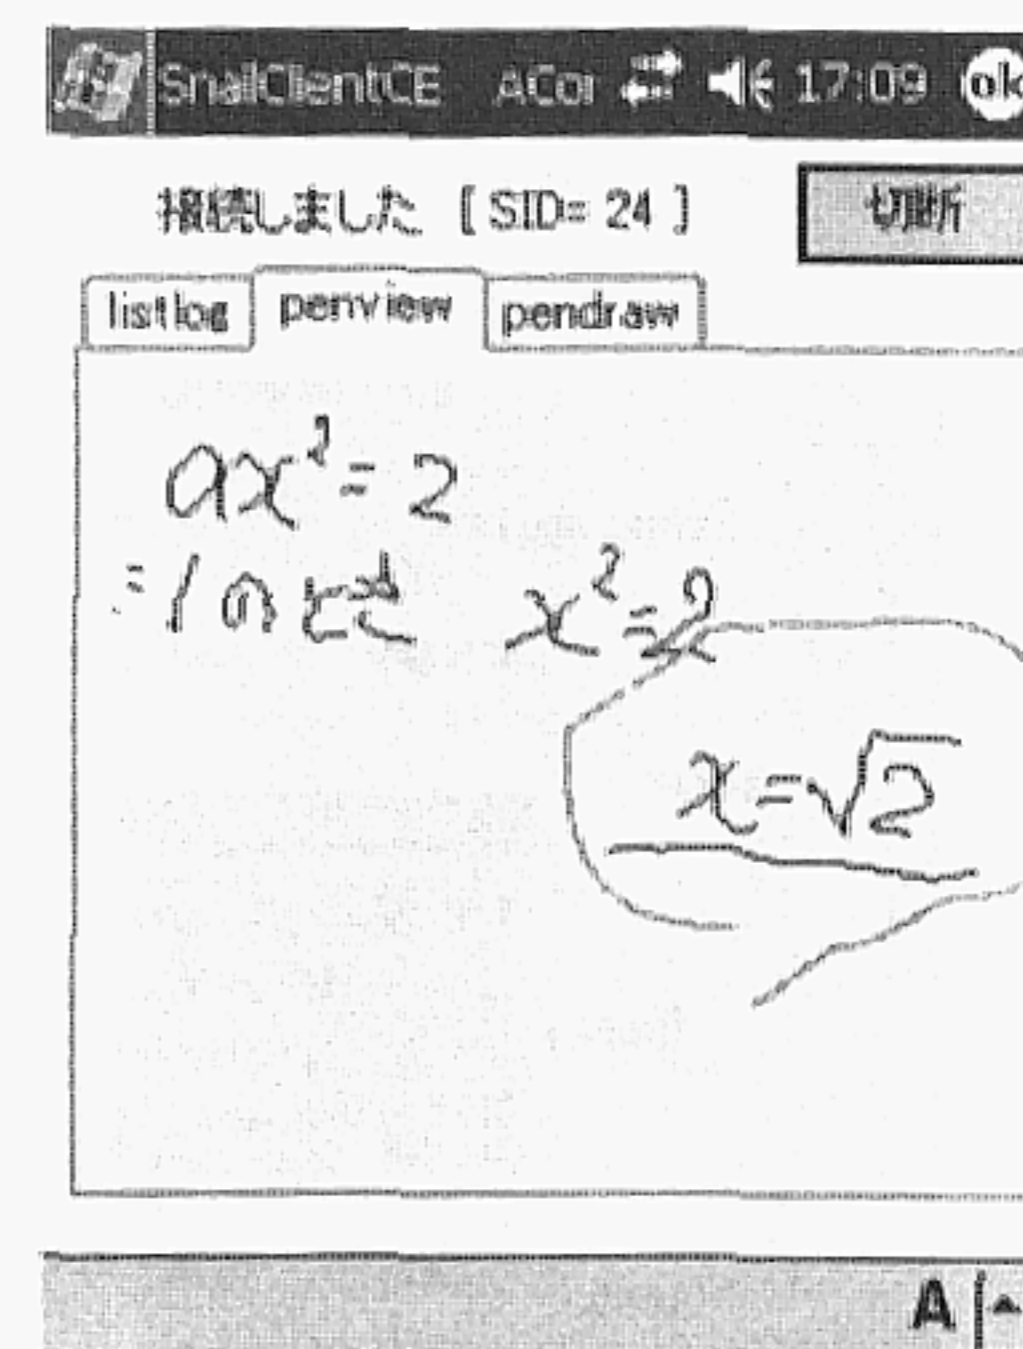 SnalClientCE ACor 17:09 ok
接続しました [ SID= 24 ] 切断
listlog penview pendraw
ax²= 2
=1のとき x²=2
x=√2
A